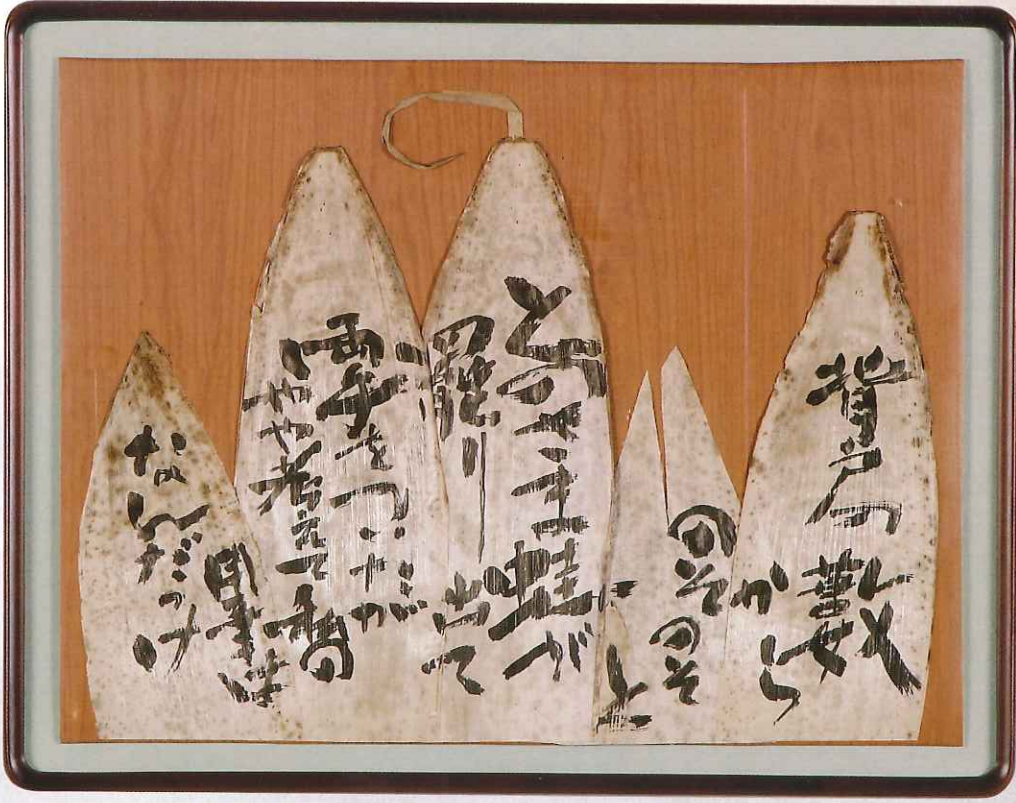 背戸の藪
から
のそのそ
と
とのさま蛙が
罷り出て
両手をついたが
やや考えて の
用事は
なんだっけ